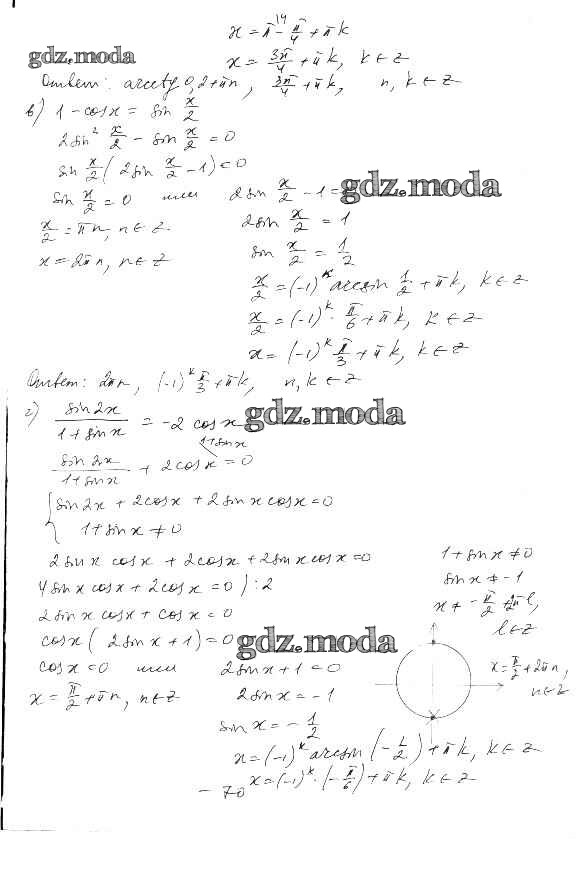 14
x = π - π/4 + πk
gdz.moda
x = 3π/4 + πk, k ∈ z
Ответ: arcctg 0,2 + πn, 3π/4 + πk, n, k ∈ z
в) 1 - cos x = sin x/2
2 sin² x/2 - sin x/2 = 0
sin x/2 (2 sin x/2 - 1) = 0
sin x/2 = 0 или 2 sin x/2 - 1 =
gdz.moda
x/2 = πn, n ∈ z. 2 sin x/2 = 1
x = 2πn, n ∈ z sin x/2 = 1/2
x/2 = (-1)^k arcsin 1/2 + πk, k ∈ z
x/2 = (-1)^k · π/6 + πk, k ∈ z
x = (-1)^k π/3 + πk, k ∈ z
Ответ: 2πn, (-1)^k π/3 + πk, n, k ∈ z
г) sin 2x / (1 + sin x) = -2 cos x
gdz.moda
sin 2x / (1 + sin x) + 2 cos x = 0
1 + sin x
{ sin 2x + 2 cos x + 2 sin x cos x = 0
1 + sin x ≠ 0
2 sin x cos x + 2 cos x + 2 sin x cos x = 0
4 sin x cos x + 2 cos x = 0 ) : 2
2 sin x cos x + cos x = 0
cos x ( 2 sin x + 1) = 0
gdz.moda
cos x = 0 или 2 sin x + 1 = 0
x = π/2 + πn, n ∈ z 2 sin x = -1
sin x = - 1/2
x = (-1)^k arcsin (- 1/2) + πk, k ∈ z
x = (-1)^k · (- π/6) + πk, k ∈ z
1 + sin x ≠ 0
sin x ≠ -1
x ≠ - π/2 + 2πl,
l ∈ z
x = π/2 + 2πn,
n ∈ z
- 70